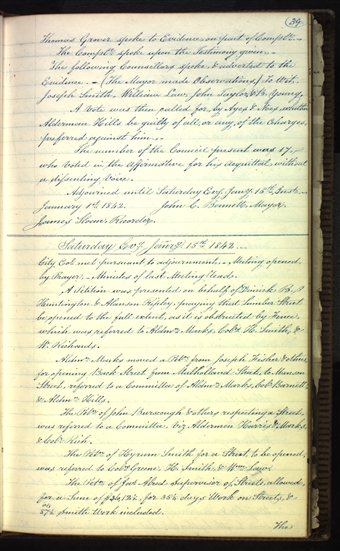 39
Thomas Grover spoke to Evidence on part of Compt.
The Compt. spoke upon the Testimony given.
The following Counsellors spoke & adverted to the
Evidence. - (The Mayor made Observations) To Wit.
Joseph Smith, William Law, John Taylor & B. Young.
A Vote was then called for, by Ayes & Noes, whether
Alderman Hills be guilty of all, or any, of the Charges
preferred against him.
The number of the Council present was 17.
who voted in the affirmative for his acquittal without
a dissenting voice.
Adjourned until Saturday Evg. Jany 15th Inst.
January 1st 1842. John C. Bennett, Mayor.
James Sloan, Recorder.
Saturday Evg. Jany 15th 1842
City Col. met pursuant to adjournment. Meeting opened
by Prayer. Minutes of last Meeting Read.
A Petition was presented on behalf of Dimick B.
Huntington & Alanson Ripley, praying that Lumber Street
be opened to the full extent, as it is obstructed by Fence,
which was referred to Aldn. Marks, Cols. H. Smith, &
W. Richards.
Aldn. Marks moved a Petn. from Joseph Fisher & others
for opening Back Street from Mulholland Street, to Munson
Street, referred to a Committee of Aldn. Marks, Col. Barnett
& Aldn. Hills.
The Petn. of John & others respecting a Street,
was referred to a Committee, viz Aldermen Harris & Marks,
& Col. Rich.
The Petn. of Hyrum Smith for a Street to be opened,
was referred to Cols. Greene, H. Smith & Wm. Law.
The Petn. of Jas. Allred Supervisor of Streets allowed,
for a Sum of for 35½ days Work on Streets, &
37½ Smith Work included.
The